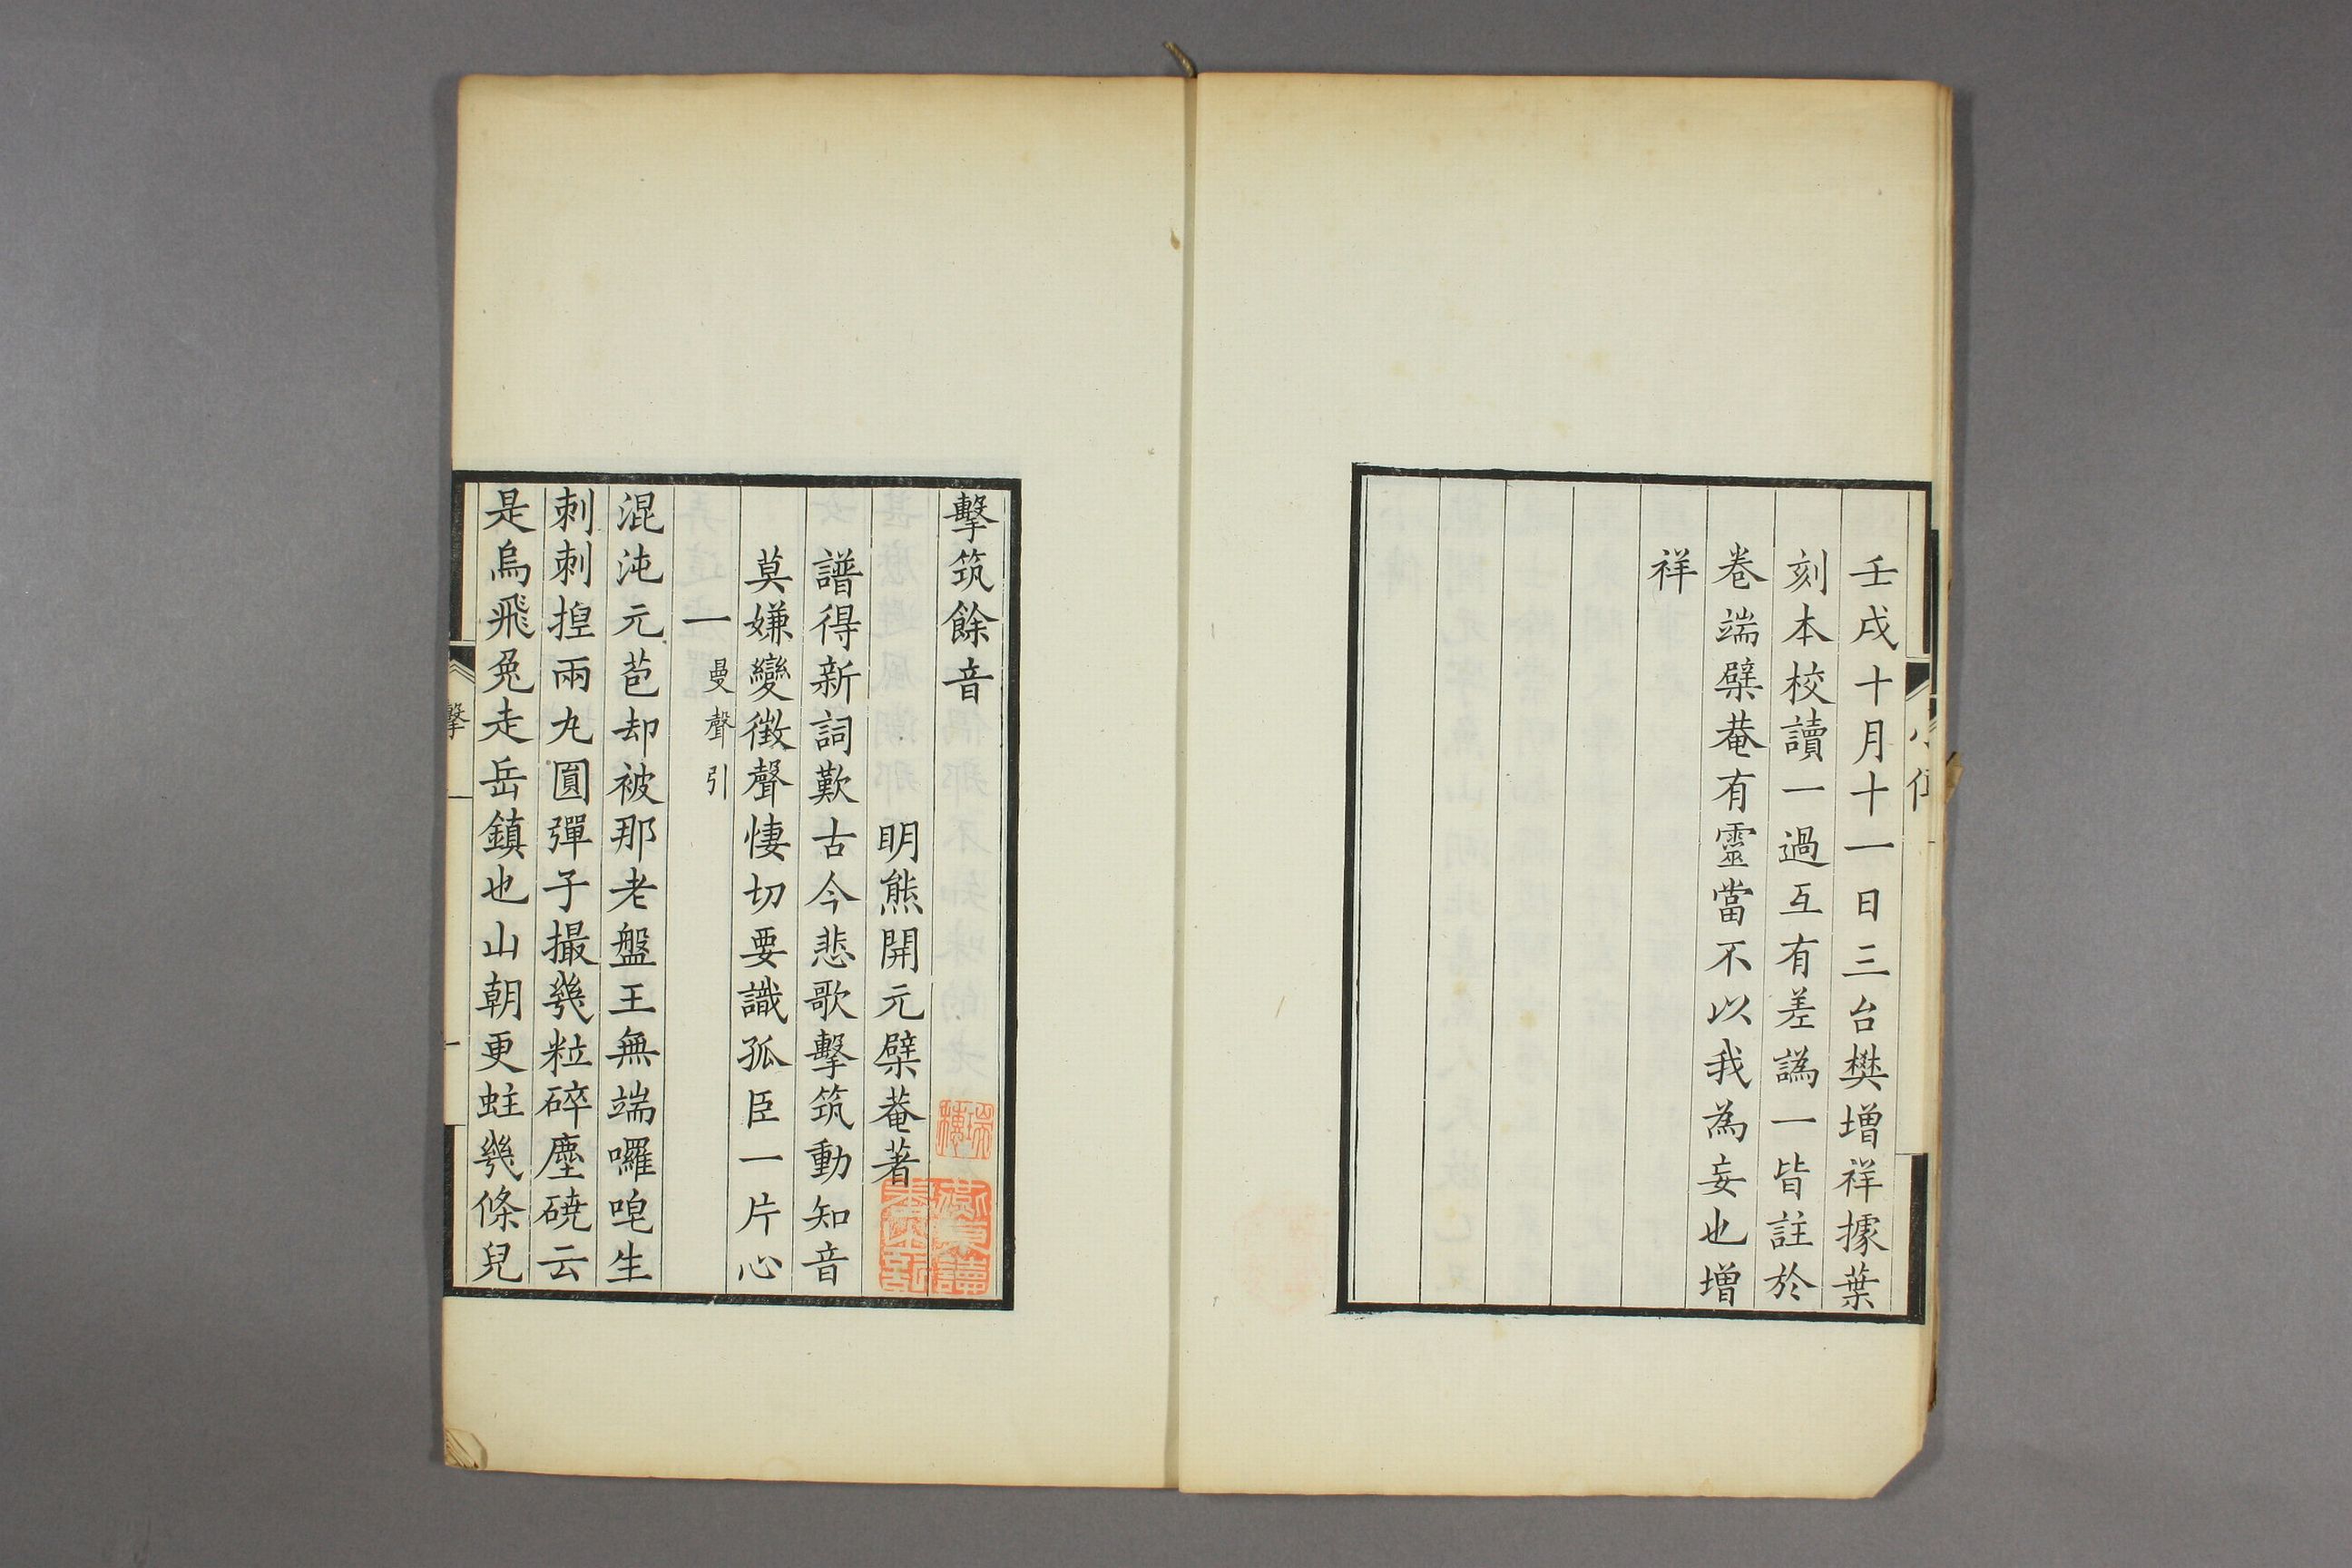 壬戌十月十一日三台樊增祥據葉
刻本校讀一過互有差譌一皆註於
卷端檗菴有靈當不以我為妄也增
祥
小傳
擊筑餘音
明熊開元檗菴著
譜得新詞歎古今悲歌擊筑動知音
莫嫌變徵聲悽切要識孤臣一片心
一曼聲引
混沌元苞却被那老盤王無端囉唣生
刺刺揑兩丸圓彈子撮幾粒碎塵磽云
是烏飛兔走岳鎮也山朝更蛀幾條兒
擊
一